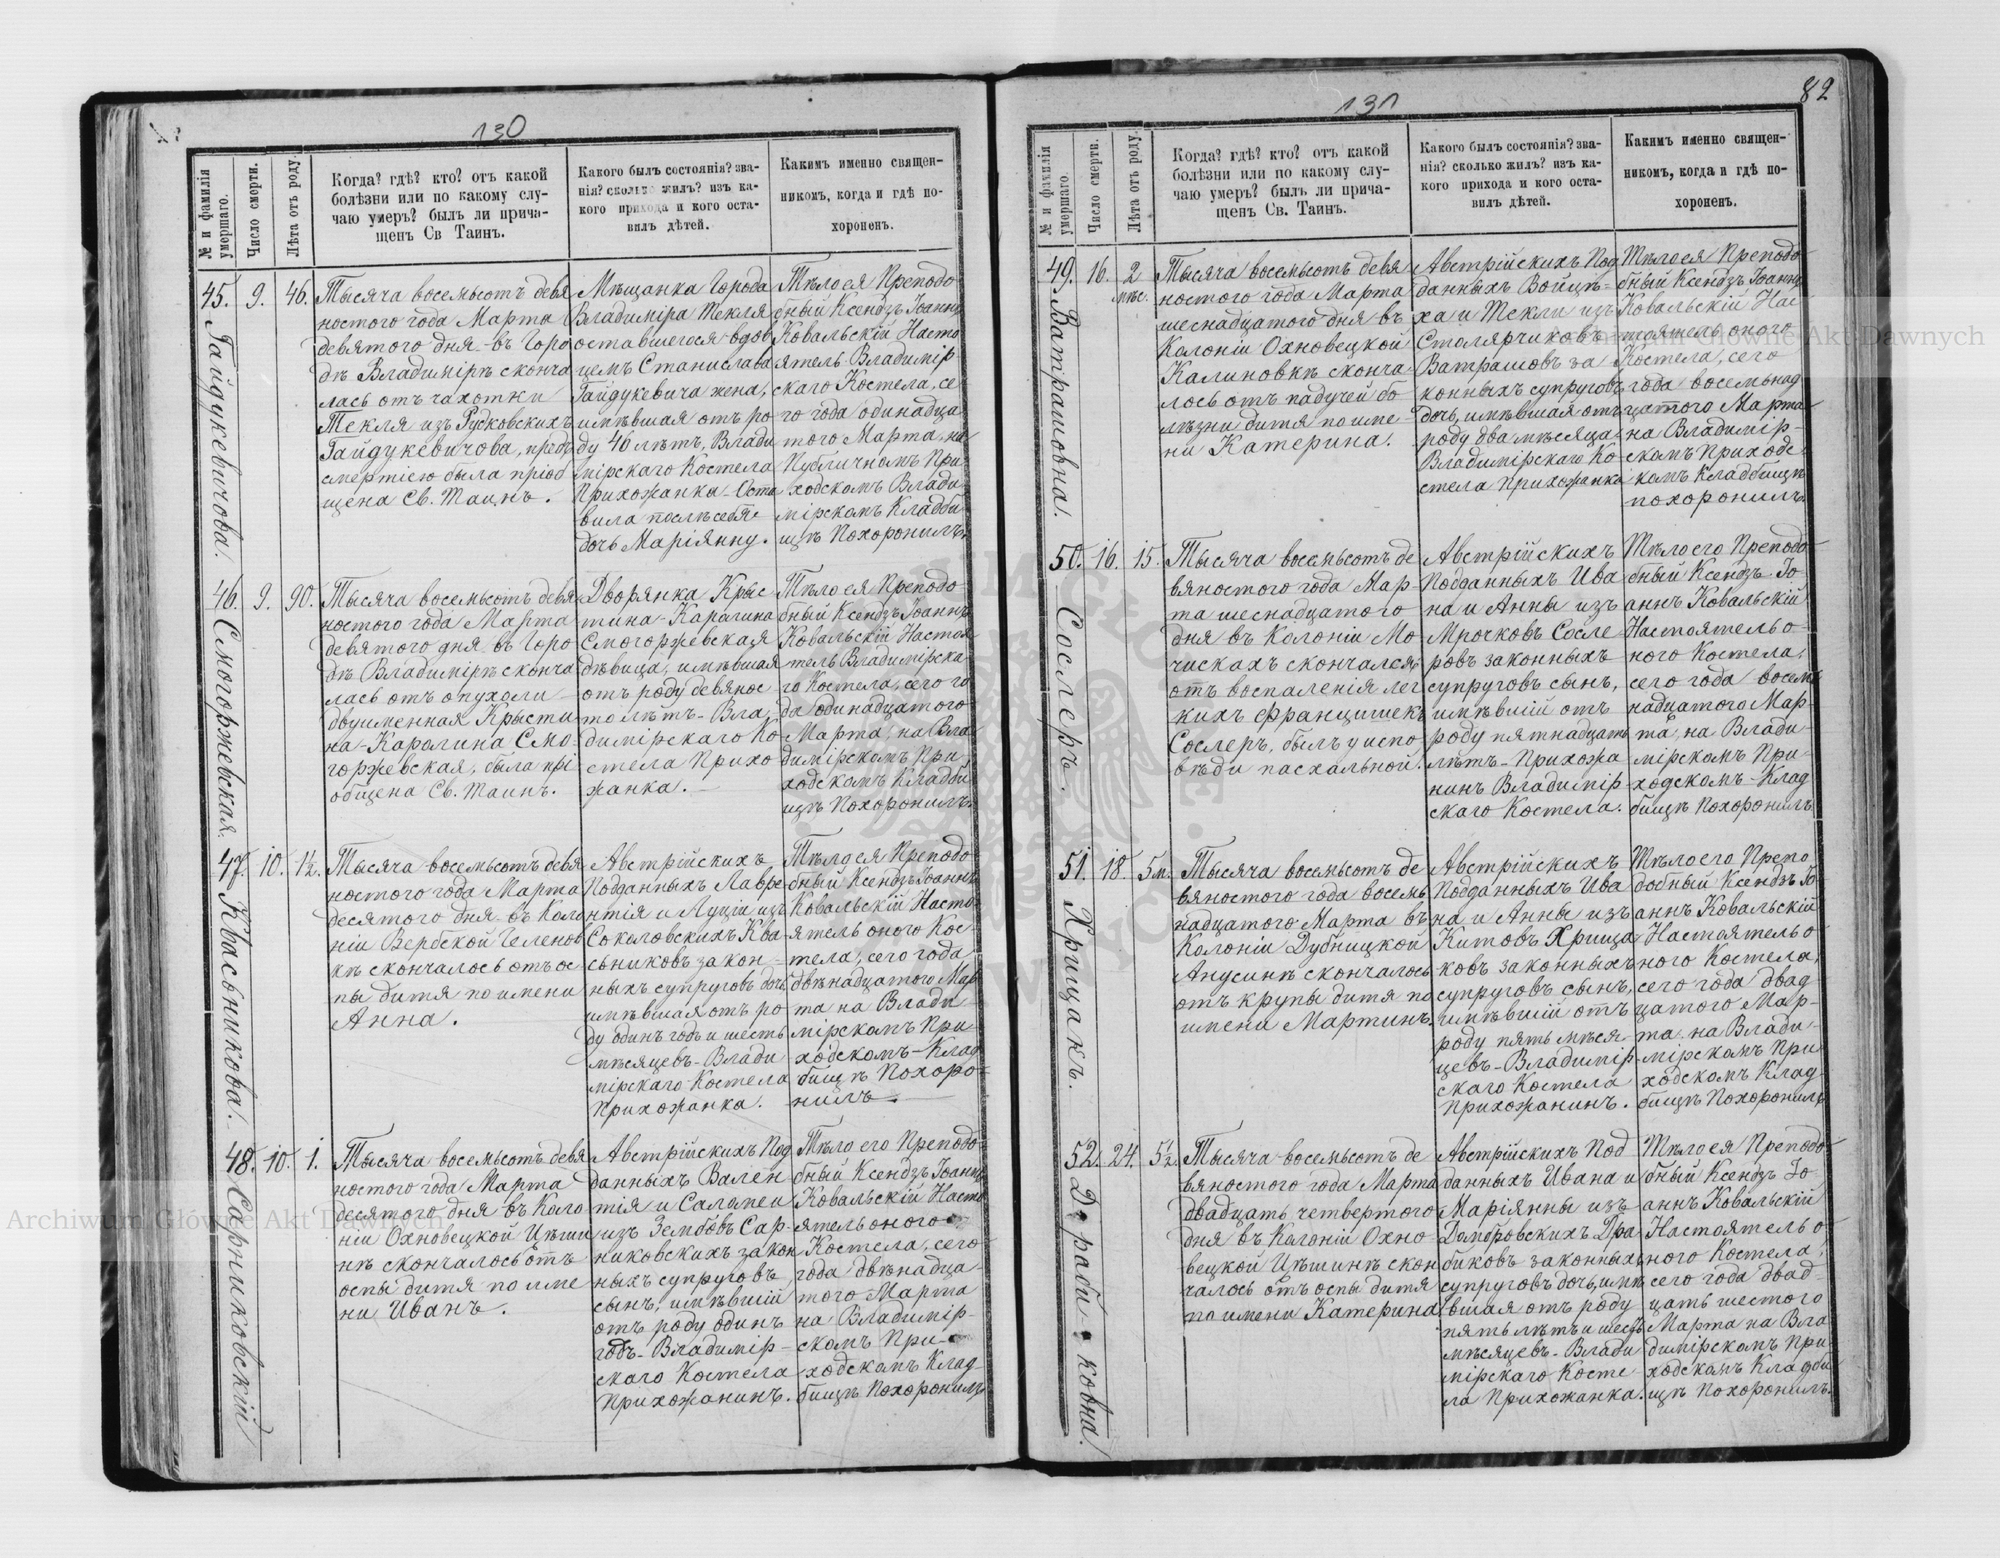 130
№ и фамилія умершаго.
Число смерти.
Лѣта отъ роду.
Когда? гдѣ? кто? отъ какой
болѣзни или по какому слу-
чаю умеръ? былъ ли прича-
щенъ Св Таинъ.
Какого былъ состоянія? зва-
нія? сколько жилъ? изъ ка-
кого прихода и кого оста-
вилъ дѣтей.
Каким именно священ-
никомъ, когда и гдѣ по-
хороненъ.
45. Гайдукевичова.
9.
46.
Тысяча восемьсотъ девя
ностого года Марта
девятого дня въ Горо
дѣ Владимірѣ сконча
лась отъ чахотки
Текля изъ Рудковскихъ
Гайдукевичова, предъ
смертію была пріоб
щена Св. Таинъ.
Мѣщанка Города
Владиміра Текля
оставшегося вдов
цемъ Станислава
Гайдукевича жена,
имѣвшая отъ ро
ду 46 лѣтъ, Влади
мірскаго Костела
Прихожанка Оста
вила послѣ себя
дочь Маріянну.
Тѣло ея Преподо
бный Ксендзъ Іоаннъ
Ковальскій Насто
ятель Владимір
скаго Костела, се
го года одинадца
того Марта, на
Публичномъ При
ходскомъ Влади
мірскомъ Кладби
щѣ Похоронилъ.
46. Смогоржевская.
9.
90.
Тысяча восемьсотъ девя
ностого года Марта
девятого дня въ Горо
дѣ Владимірѣ сконча
лась отъ опухоли
двуименная Крысти
на-Каролина Смо
горжевская, была прі
общена Св. Таинъ.
Дворянка Крыс
тина-Каролина
Смогоржевская
дѣвица, имѣвшая
отъ роду девянос
то лѣтъ - Вла
димірскаго Ко
стела Прихо
жанка.
Тѣло ея Преподо
бный Ксендзъ Іоаннъ
Ковальскій Настоя
тель Владимірска
го Костела, сего го
да одинадцатого
Марта, на Вла
димірскомъ При
ходскомъ Кладби
щѣ Похоронилъ.
47. Квасьникова.
10.
1½.
Тысяча восемьсотъ девя
ностого года Марта
десятого дня въ Коло
ніи Вербской Геленов
кѣ скончалось отъ ос
пы дитя по имени
Анна.
Австрійскихъ
Подданныхъ Лавре
нтія и Луціи изъ
Соколовскихъ Ква-
сьниковъ закон-
ныхъ супруговъ дочь
имѣвшая отъ ро
ду одинъ годъ и шесть
мѣсяцевъ - Влади
мірскаго Костела
Прихожанка.
Тѣло ея Преподо
бный Ксендзъ Іоаннъ
Ковальскій Насто
ятель оного Кос-
тела, сего года
двѣнадцатого Мар
та на Влади
мірскомъ При
ходскомъ - Клад
бищѣ Похоро-
нилъ.
48. Сарниковскій
10.
1.
Тысяча восемьсотъ девя
ностого года Марта
десятого дня въ Коло
ніи Охновецкой Цѣши
нѣ скончалось отъ
оспы дитя по име
ни Иванъ.
Австрійскихъ Под
данныхъ Вален
тія и Саломеи
изъ Зембовъ Сар-
никовскихъ закон
ныхъ супруговъ
сынъ, имѣвшій
отъ роду одинъ
годъ - Владимір-
скаго Костела
Прихожанинъ.
Тѣло его Преподо
бный Ксендзъ Іоаннъ
Ковальскій Насто
ятель оного
Костела, сего
года двѣнадца-
того Марта
на Владимір-
скомъ При-
ходскомъ Клад
бищѣ Похоронилъ
131
82
№ и фамилія умершаго.
Число смерти.
Лѣта отъ роду.
Когда? гдѣ? кто? отъ какой
болѣзни или по какому слу-
чаю умеръ? былъ ли прича-
щенъ Св. Таинъ.
Какого былъ состоянія? зва-
нія? сколько жилъ? изъ ка-
кого прихода и кого оста-
вилъ дѣтей.
Каким именно священ-
никомъ, когда и гдѣ по-
хороненъ.
49. Ватрашовна.
16.
2 мѣс.
Тысяча восемьсотъ девя
ностого года Марта
шеснадцатого дня въ
Колоніи Охновецкой
Калиновкѣ сконча-
лось отъ падучей бо
лѣзни дитя по име-
ни Катерина.
Австрійскихъ Под
данныхъ Войцѣ-
ха и Текли изъ
Столярчиковъ
Ватрашовъ за
конныхъ супруговъ
дочь, имѣвшая отъ
роду два мѣсяца
Владимірскаго Ко
стела Прихожанка
Тѣло ея Преподо
бный Ксендзъ Іоаннъ
Ковальскій Нас
тоятель оного
Костела, сего
года восемьнад
цатого Марта
на Владимір-
скомъ Приходс
комъ Кладбищѣ
похоронилъ.
50. Сослеръ.
16.
15.
Тысяча восемьсотъ де
вяностого года Мар
та шеснадцатого
дня въ Колоніи Мо
чискахъ скончался
отъ воспаленія лег
кихъ Францишекъ
Сослеръ, былъ у испо
вѣди пасхальной.
Австрійскихъ
Подданныхъ Ива
на и Анны изъ
Мрочковъ Сосле
ровъ законныхъ
супруговъ сынъ,
имѣвшій отъ
роду пятнадцать
лѣтъ - Прихожа
нинъ Владимір
скаго Костела.
Тѣло его Преподо
бный Ксендзъ Іо
аннъ Ковальскій
Настоятель о-
ного Костела,
сего года восемь
надцатого Мар-
та, на Влади-
мірскомъ При-
ходскомъ - Клад
бищѣ Похоронилъ
51. Хрицакъ.
18.
5 м.
Тысяча восемьсотъ де
вяностого года восемь
надцатого Марта въ
Колоніи Дубницкой
Анусинѣ скончалось
отъ крупы дитя по
имени Мартинъ.
Австрійскихъ
Подданныхъ Ива
на и Анны изъ
Китовъ Хрица
ковъ законныхъ
супруговъ сынъ,
имѣвшій отъ
роду пять мѣся-
цевъ - Владимір
скаго Костела
Прихожанинъ.
Тѣло его Препо
добный Ксендзъ Іо
аннъ Ковальскій
Настоятель о
ного Костела,
сего года двад-
цатого Мар-
та, на Влади-
мірскомъ При
ходскомъ Клад-
бищѣ Похоронилъ
52.
24.
5½.
Тысяча восемьсотъ де
вяностого года Марта
двадцать четвертого
дня въ Колоніи Охно
вецкой Цѣшинѣ скон
чалось отъ оспы дитя
по имени Катерина
Австрійскихъ Под
данныхъ Ивана и
Маріянны изъ
Домбровскихъ Дра
биковъ законныхъ
супруговъ дочь, имѣ
вшая отъ роду
пять лѣтъ и шесть
мѣсяцевъ - Влади
мірскаго Косте
ла Прихожанка.
Тѣло ея Преподо
бный Ксендзъ Іо
аннъ Ковальскій
Настоятель о
ного Костела,
сего года двад-
цать шестого
Марта на Вла
димірскомъ При
ходскомъ Кладби
щѣ Похоронилъ.
Archiwum Główne Akt Dawnych
Archiwum Główne Akt Dawnych